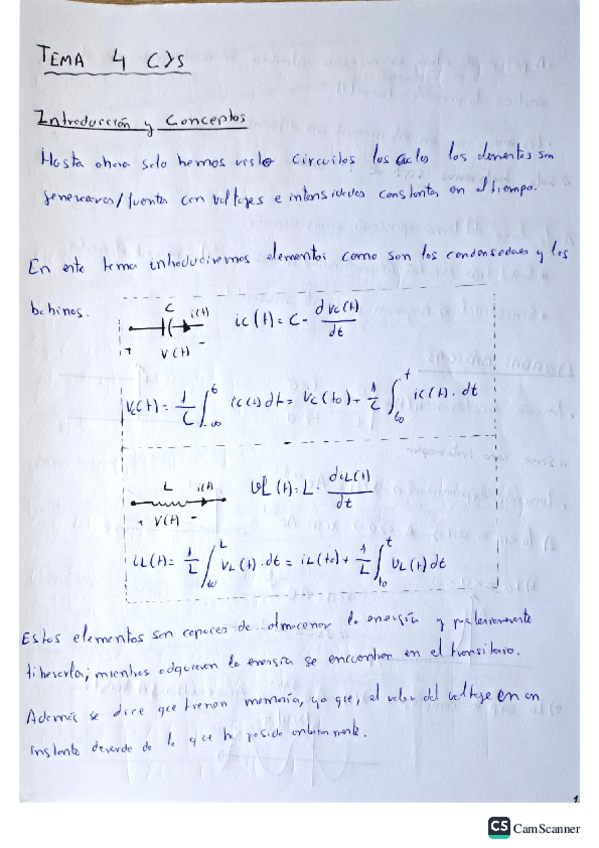 TEMA 4 CyS
Introducción y Conceptos
Hasta ahora solo hemos visto circuitos los cuales los elementos son
generadores/fuentes con voltajes e intensidades constantes en el tiempo.
En este tema introduciremos elementos como son los condensadores y los
bobinas.
C i(t)
+ V(t) -
ic(t) = C· dvc(t)/dt
Vc(t) = 1/C ∫_{-∞}^{t} ic(t) dt = Vc(to) + 1/C ∫_{to}^{t} ic(t)·dt
L i(t)
+ V(t) -
VL(t) = L· diL(t)/dt
iL(t) = 1/L ∫ VL(t)·dt = iL(to) + 1/L ∫_{to}^{t} VL(t) dt
Estos elementos son capaces de almacenar la energía y posteriormente
liberarla; mientras adquieren la energía se encuentran en el transitorio.
Además se dice que tienen memoria, ya que, el valor del voltaje en un
instante de lo que ha pasado
1
CS CamScanner